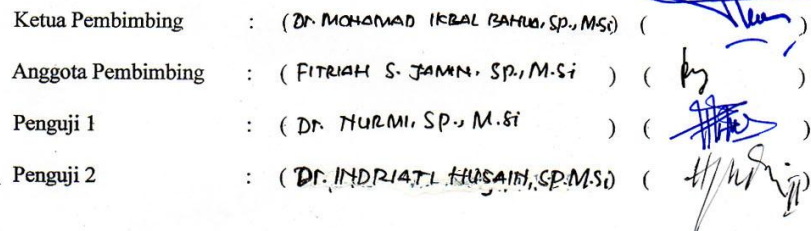 Ketua Pembimbing : (Dr. MOHAMAD IKBAL BAHUA, SP., M.Si) ( )
Anggota Pembimbing : ( FITRIAH S. JAMIN, SP., M.Si ) ( )
Penguji 1 : ( Dr. NURMI, SP., M.Si ) ( )
Penguji 2 : ( Dr. INDRIATI HUSAIN, SP. M.Si) ( )